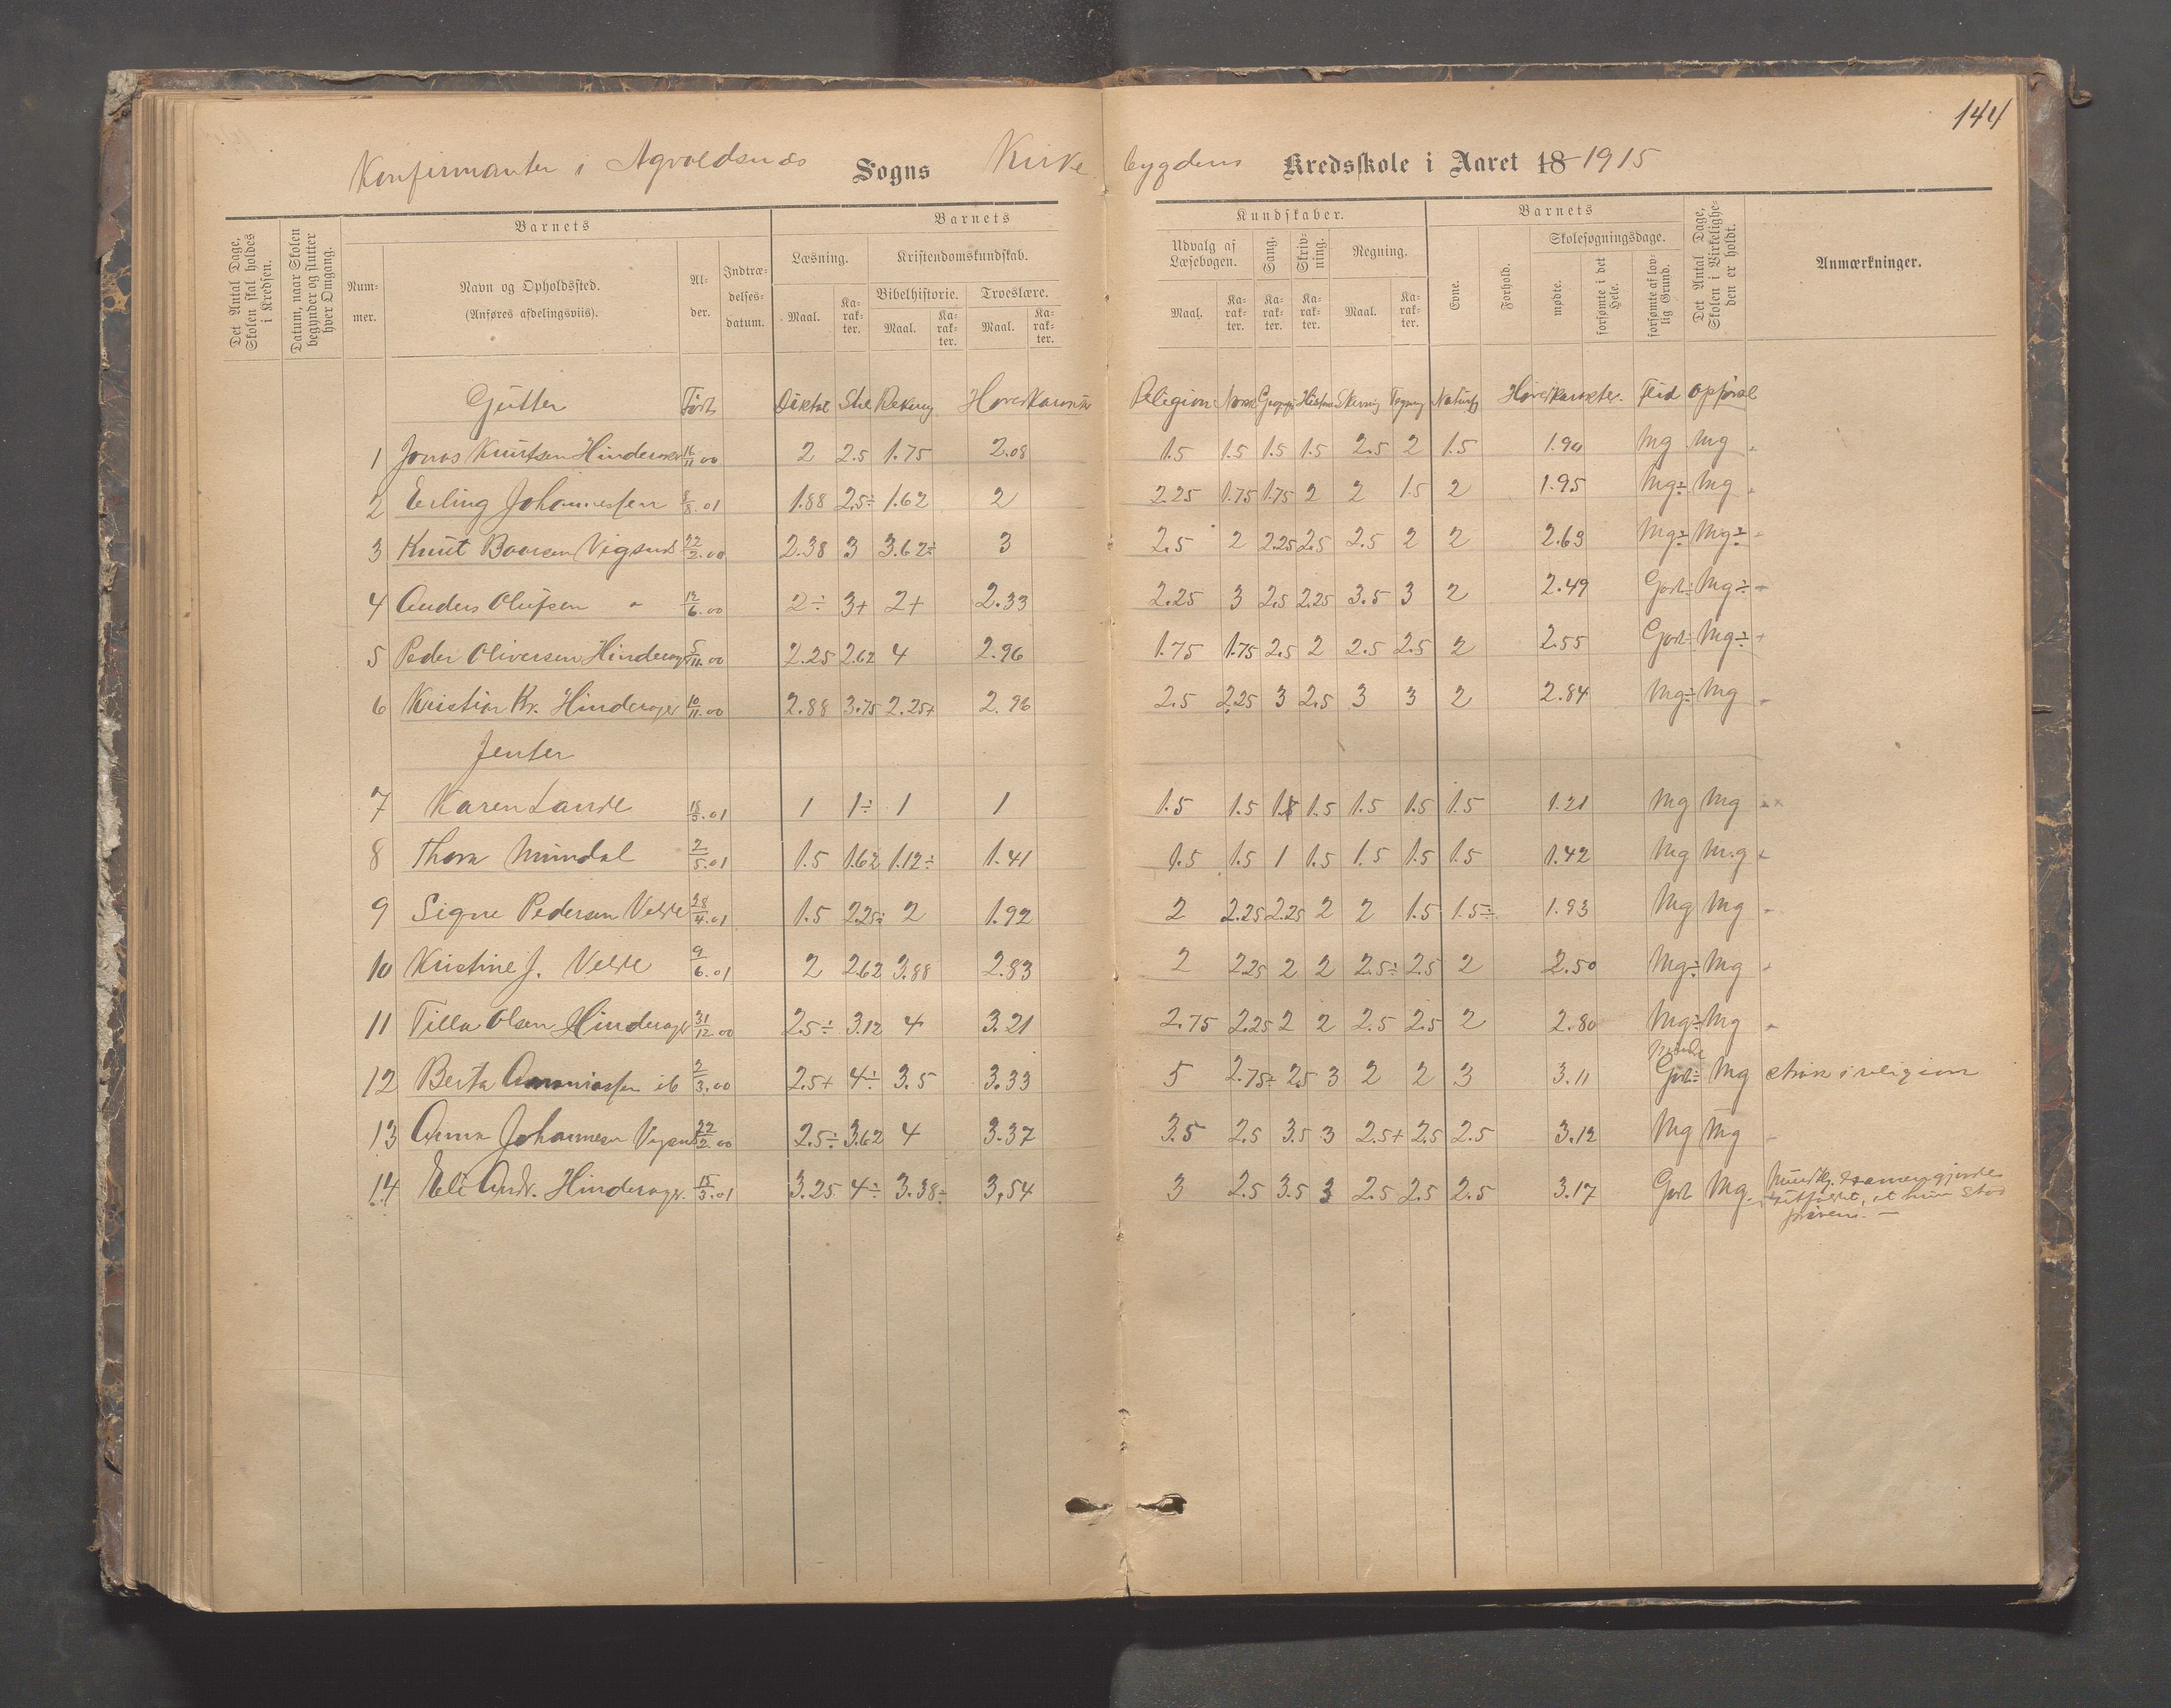 144
Konfirmanter i Agvaldsnæs Sogns Kirke bygdens Kredsskole i Aaret 18 1915
Det Antal Dage, Skolen skal holdes i Kredsen.
Datum, naar Skolen begynder og slutter hver Omgang.
Barnets
Num- mer.
Navn og Opholdssted. (Anføres afdelingsviis).
Al- der.
Indtræ- delses- datum.
Barnets
Læsning. Kristendomskundskab.
Bibelhistorie. Troeslære.
Maal. Ka- rak- ter. Maal. Ka- rak- ter. Maal. Ka- rak- ter.
Kundskaber.
Udvalg af Læsebogen. Sang. Skriv- ning. Regning.
Maal. Ka- rak- ter. Ka- rak- ter. Ka- rak- ter. Maal. Ka- rak- ter.
Barnets
Evne. Forhold. Skolesøgningsdage.
mødte. forsømte i det Hele. forsømte af lov- lig Grund.
Det Antal Dage, Skolen i Virkelighe- den er holdt.
Anmærkninger.
Gutter Født Diktat Stil Rekning Hovedkarakter Religion Norsk Geografi Historie Skrivning Tegning Naturf Hovedkarakter. Flid Opførsel
1 Jonas Knutsen Hinderaker 16/11 00 2 2.5 1.75 2.08 1.5 1.5 1.5 1.5 2.5 2 1.5 1.90 Mg Mg
2 Erling Johannessen 8/8.01 1.88 2.5÷ 1.62 2 2.25 1.75 1.75 2 2 1.5 2 1.95 Mg÷ Mg
3 Knut Baarsen Vigsnes 22/2.00 2.38 3 3.62÷ 3 2.5 2 2.25 2.5 2.5 2 2 2.63 Mg÷ Mg÷
4 Anders Olufsen " 12/6.00 2÷ 3+ 2+ 2.33 2.25 3 2.5 2.25 3.5 3 2 2.49 Godt÷ Mg÷
5 Peder Oliversen Hinderager 5/11.00 2.25 2.62 4 2.96 1.75 1.75 2.5 2 2.5 2.5 2 2.55 Godt÷ Mg÷
6 Kristian Kr. Hinderager 10/11.00 2.88 3.75 2.25+ 2.96 2.5 2.25 3 2.5 3 3 2 2.84 Mg÷ Mg
Jenter
7 Karen Lande 15/3.01 1 1÷ 1 1 1.5 1.5 1.5 1.5 1.5 1.5 1.5 1.21 Mg Mg
8 Thora Mundal 2/5.01 1.5 1.62 1.12÷ 1.41 1.5 1.5 1 1.5 1.5 1.5 1.5 1.42 Mg M.g
9 Signe Pedersen Velde 28/4.01 1.5 2.25÷ 2 1.92 2 2.25 2.25 2 2 1.5 1.5÷ 1.93 Mg Mg
10 Kristine J. Velde 9/6.01 2 2.62 3.88 2.83 2 2.25 2 2 2.5÷ 2.5 2 2.50 Mg÷ Mg
11 Tilla Olsen Hinderager 31/12.00 2.5÷ 3.12 4 3.21 2.75 2.25 2 2 2.5 2.5 2 2.80 Mg÷ Mg
12 Berta Ananiassen ib 2/3.00 2.5+ 4÷ 3.5 3.33 5 2.75÷ 2.5 3 2 2 3 3.11 Godt÷ Mg strøk i religion
13 Anna Johannesen Vigsnes 22/2.00 2.5÷ 3.62 4 3.37 3.5 2.5 3.5 3 2.5+ 2.5 2.5 3.12 Mg Mg
14 Eli Andr. Hinderager. 15/3.01 3.25 4÷ 3.38÷ 3,54 3 2.5 3.5 3 2.5 2.5 2.5 3.17 Godt Mg. Mundtlg. examen gjorde
utslaget, at hun stod
prøven. —